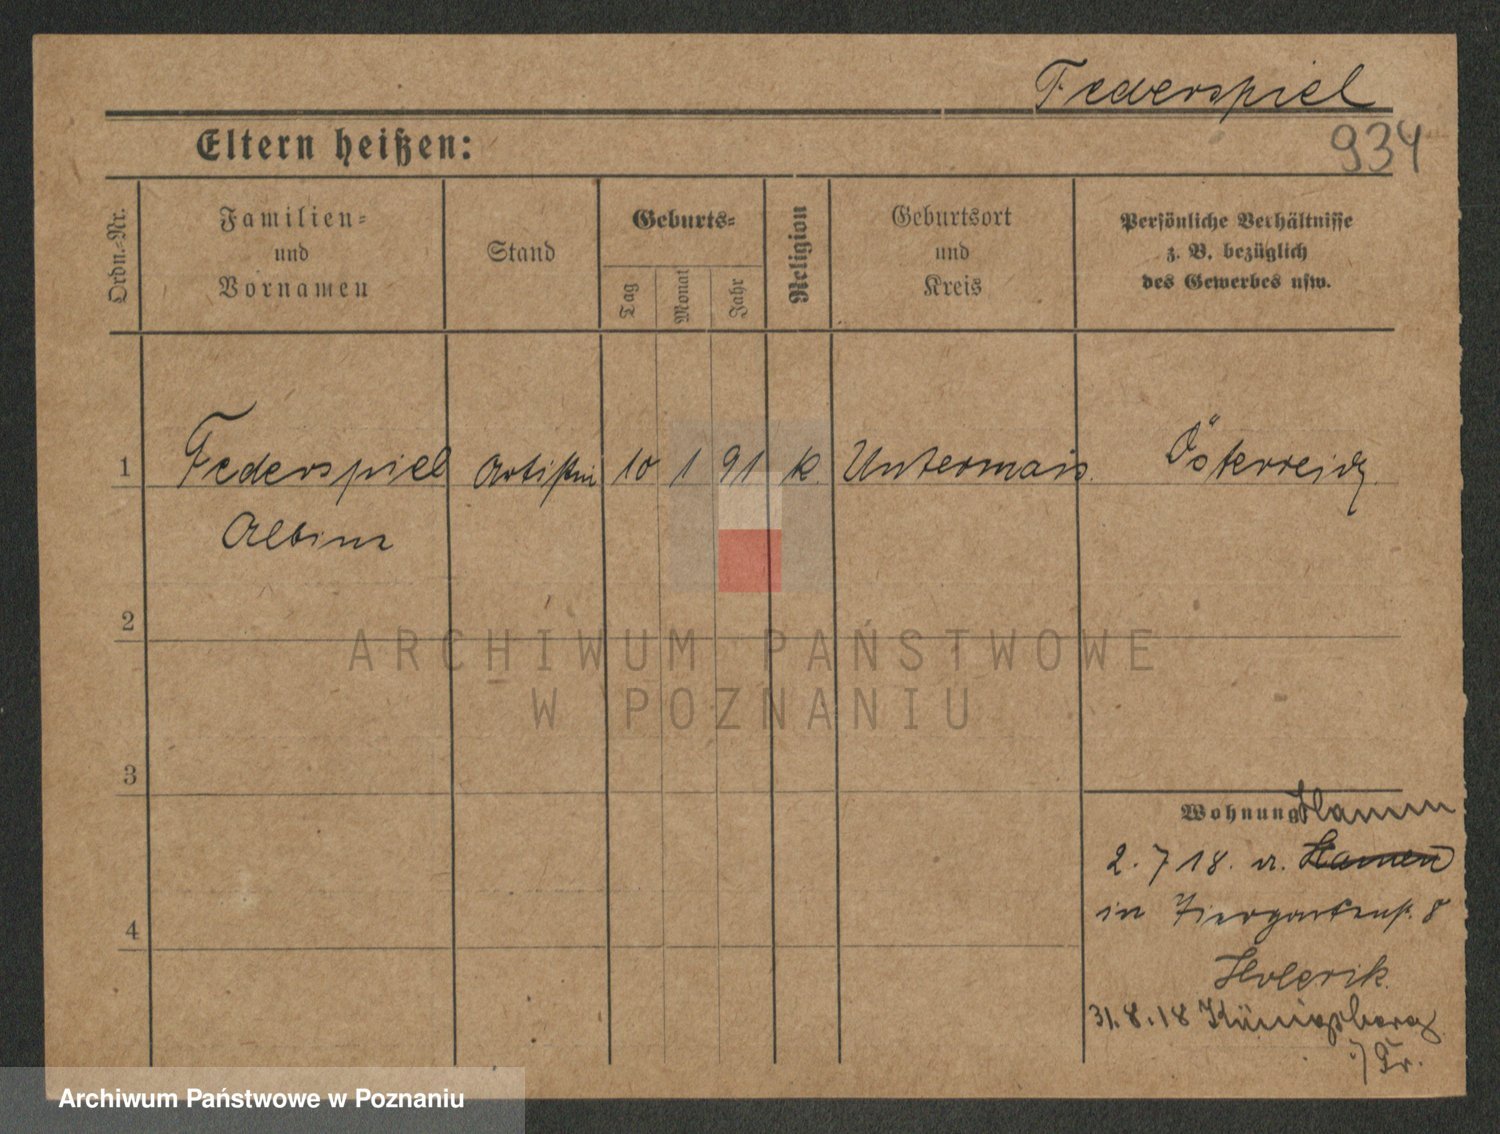 Federspiel
934
Eltern heißen:
Ordn.-Nr.
Familien-
und
Vornamen
Stand
Geburts-
Tag
Monat
Jahr
Religion
Geburtsort
und
Kreis
Persönliche Verhältnisse
z. B. bezüglich
des Gewerbes usw.
1 Federspiel Artistin 10 1 91 k. Untermais. Österreich.
Albina
2
3
4
Wohnung Hamm
2. 7 18. v. Hamm
in Tiergartenst. 8
31.8.18 Königsberg
i/Pr.
ARCHIWUM PAŃSTWOWE
W POZNANIU
Archiwum Państwowe w Poznaniu